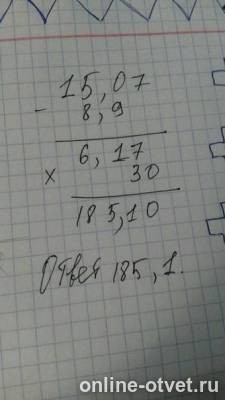 15,07
- 8,9
6,17
x 30
185,10
Ответ 185,1.
online-otvet.ru